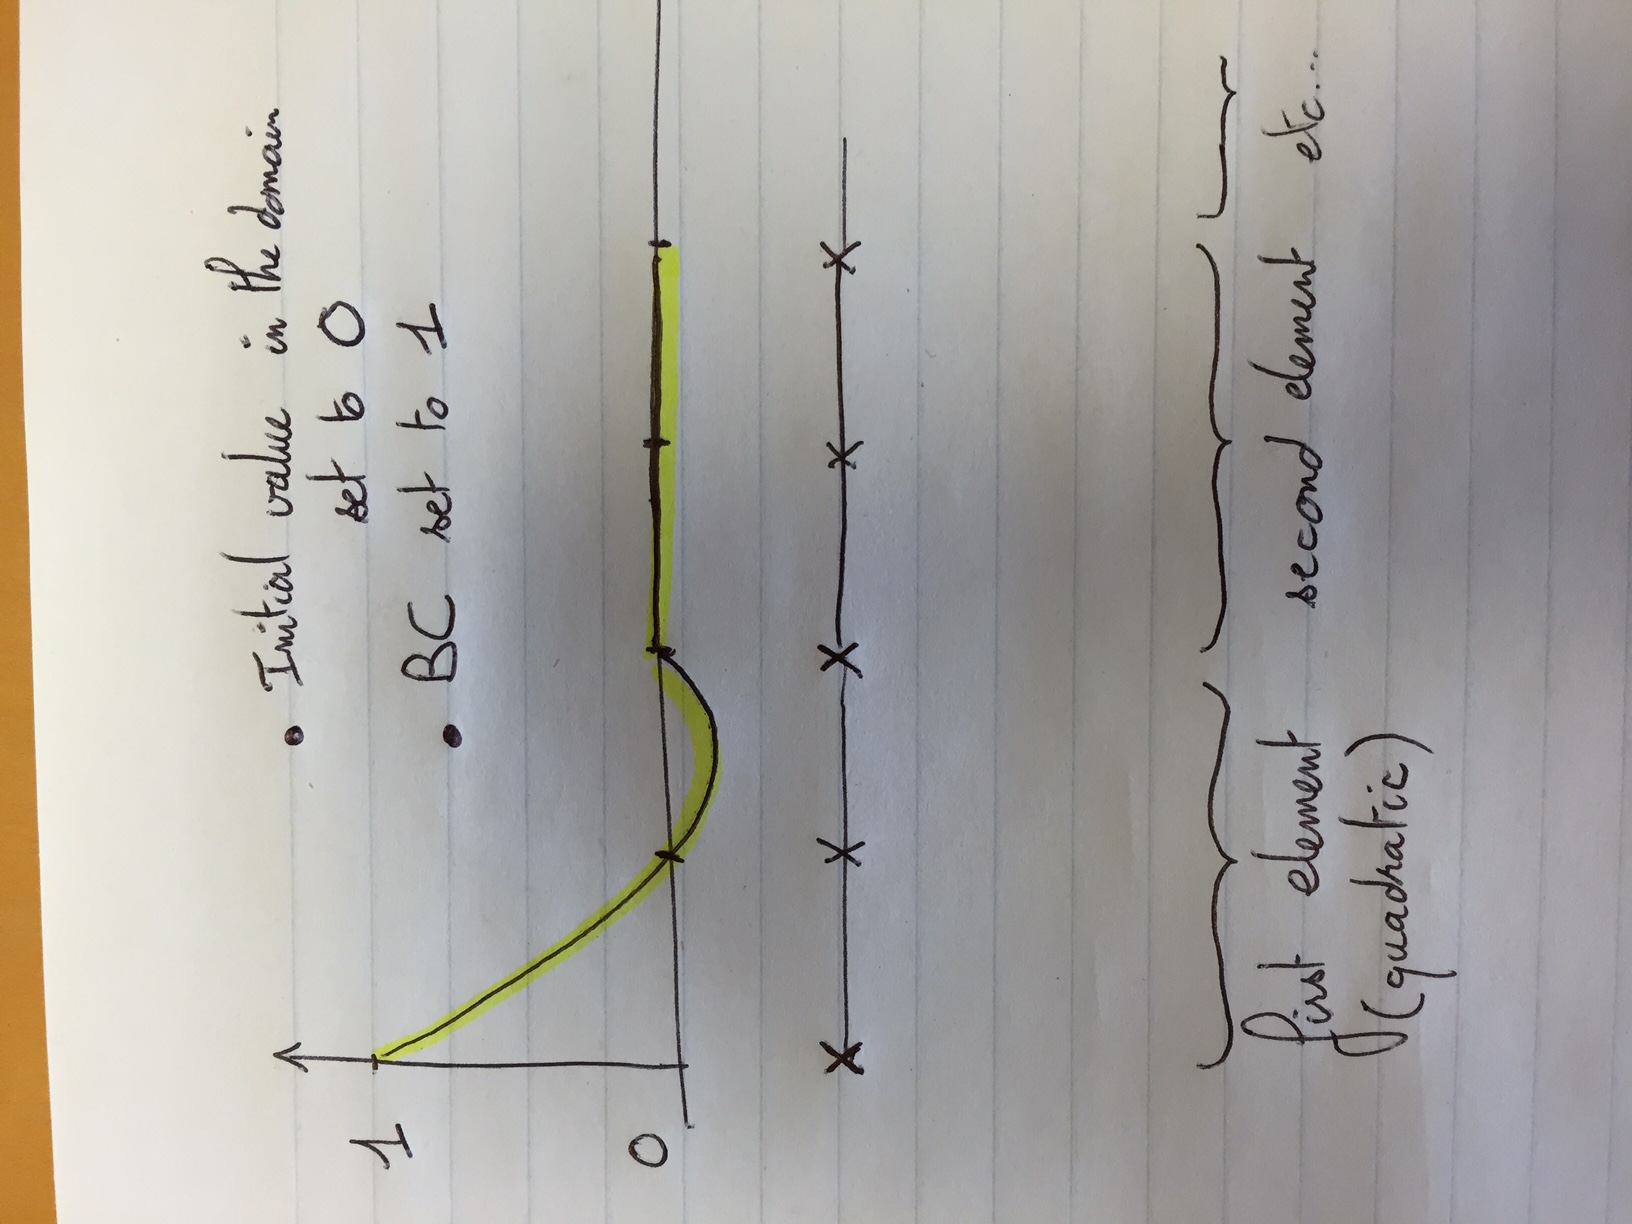 • Initial value in the domain
set to 0
• BC set to 1
1
0
first element
(quadratic)
second element
etc...